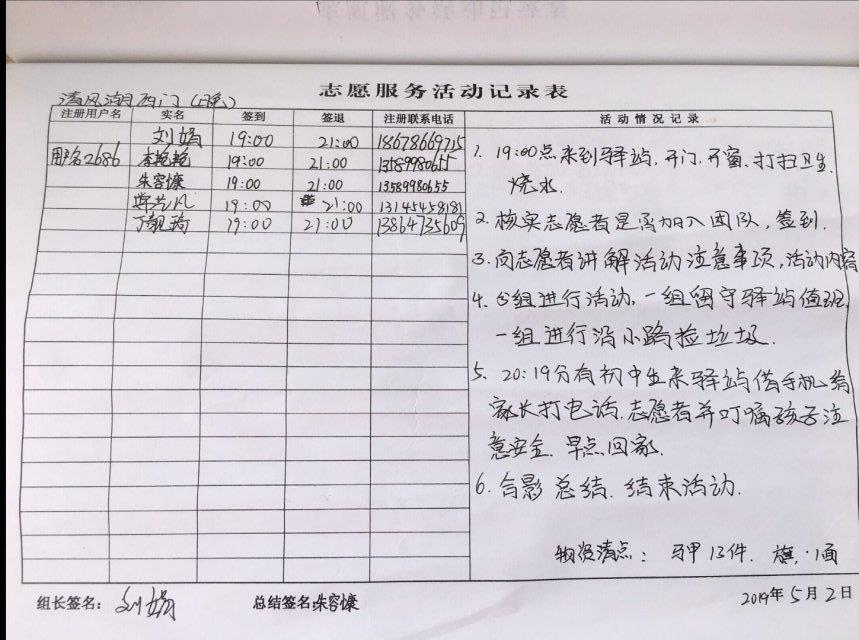 志愿服务活动记录表
清风湖西门(晚)
注册用户名 实名 签到 签退 注册联系电话 活动情况记录
刘娟 19:00 21:00 18678669715
用户名2686 李艳艳 19:00 21:00 13589980655
朱容慷 19:00 21:00 13589980655
19:00 21:00 13145458181
19:00 21:00 13864735609
1. 19:00点来到驿站,开门,开窗,打扫卫生.
烧水.
2. 核实志愿者是否加入团队,签到.
3. 向志愿者讲解活动注意事项,活动内容
4. 分组进行活动,一组留守驿站值班,
一组进行沿小路捡垃圾.
5. 20:19分有初中生来驿站借手机给
家长打电话.志愿者并叮嘱孩子注
意安全.早点回家.
6. 合影 总结. 结束活动.
物资清点: 马甲13件. 旗,1面
组长签名: 刘娟 总结签名:朱容慷 2019年5月2日